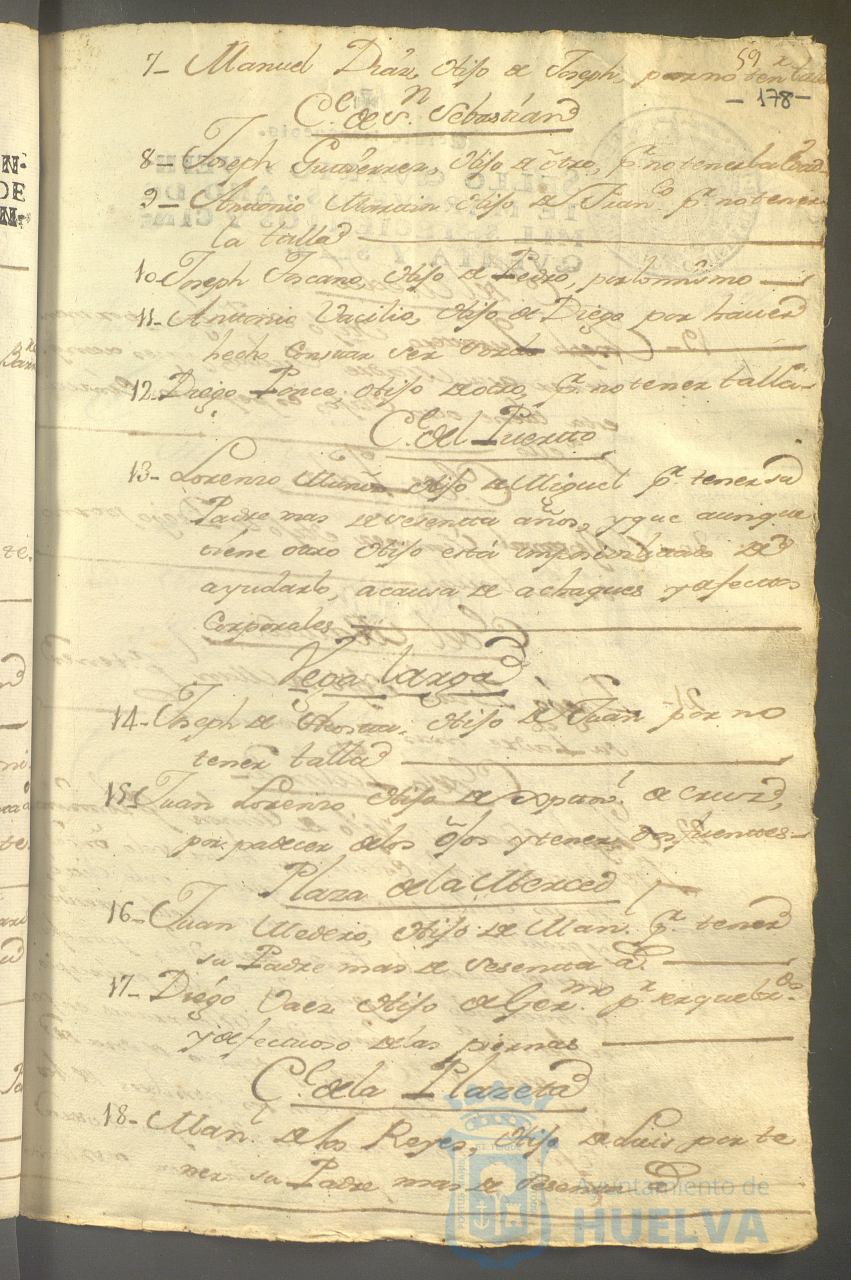 59
7- Manuel Diaz, Hijo de Joseph, por no ten talla
- 178 -
C.e de S.n Sebastian
8- Joseph Gutierrez, Hijo de otro, p.r no tener la
9- Antonio Martin Hijo de Fran.co p.r no tener
la talla
10- Joseph Toscano, Hijo de Pedro, por lo mismo
11- Antonio Vacilio, Hijo de Diego por haver
hecho constar ser sordo
12- Diego Ponce, Hijo de otro, p.r no tener talla
C.e del Puerto
13- Lorenzo Muñoz Hijo de Miguel p.r tener su
Padre mas de sesenta años, y que aunque
tiene otro Hijo está imposibilitado de
ayudarlo, a causa de achaques y defectos
Corporales
Vega larga
14- Joseph de Acosta, Hijo de Juan por no
tener talla
15- Juan Lorenzo Hijo de de Cruz,
por padecer de los ojos y tener dos fuentes
Plaza de la Merced
16- Juan Medero, Hijo de Man.l p.r tener
su Padre mas de sesenta a.
17- Diego Vaez Hijo de Ger.mo p.r ser quebr.do
y defectuoso de las piernas
C.e de la Plazeta
18- Man.l de los Reyes, Hijo de Luis por te
ner su Padre mas de sesenta
Ayuntamiento de
HUELVA